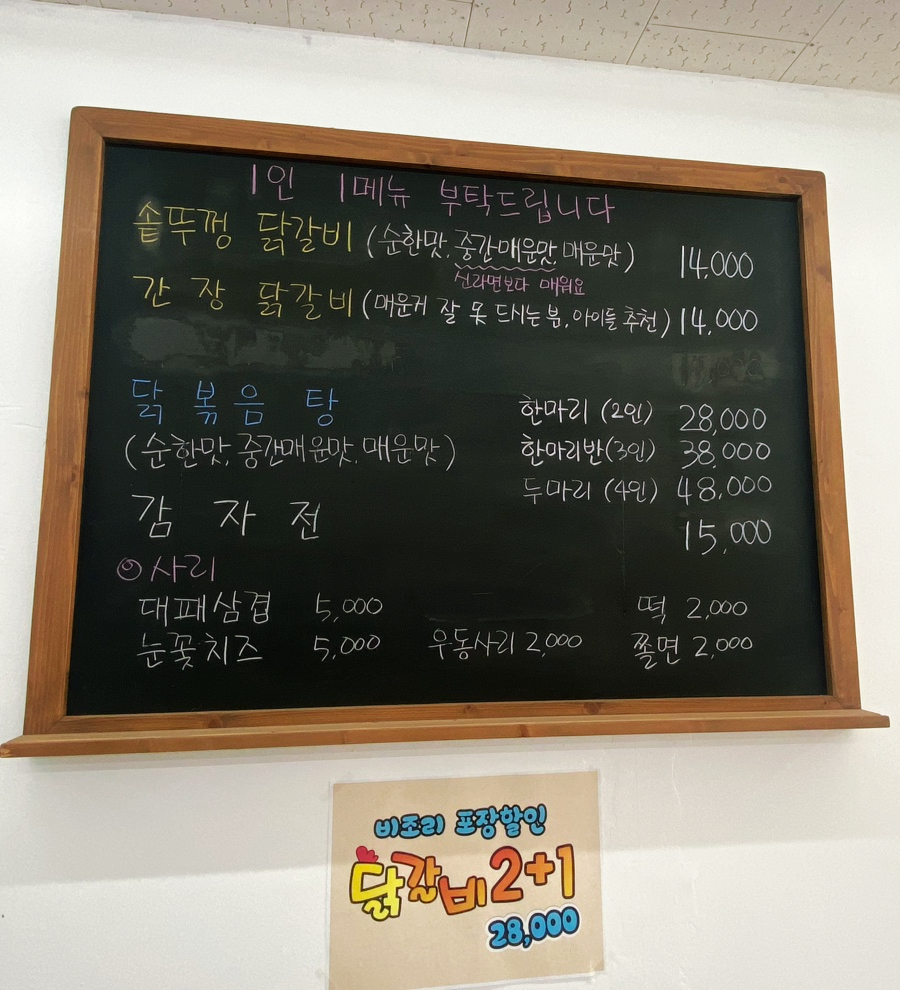 1인 1메뉴 부탁드립니다
솥뚜껑 닭갈비 (순한맛, 중간매운맛, 매운맛) 14,000
신라면보다 매워요
간장 닭갈비 (매운거 잘 못 드시는 분, 아이들 추천) 14,000
닭볶음탕 한마리 (2인) 28,000
(순한맛, 중간매운맛, 매운맛) 한마리반(3인) 38,000
두마리 (4인) 48,000
감자전 15,000
◎사리
대패삼겹 5,000 떡 2,000
눈꽃치즈 5,000 우동사리 2,000 쫄면 2,000
비조리 포장할인
닭갈비 2+1
28,000